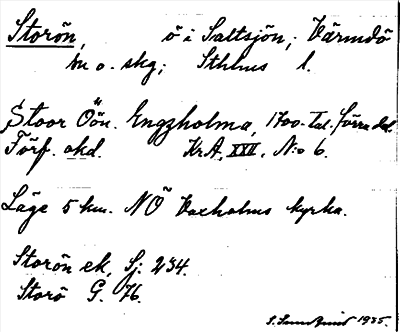 Storön, ö i Saltsjön; Värmdö
sn o. skg; Sthlms l.
Stoor Öön. Engzholma, 1700-tal. förra del.
Förf. okd. KrA, XXII, N:o 6.
Läge 5 km. NÖ Vaxholms kyrka.
Storön ek, Sj. 234.
Storö G. 76.
1935.